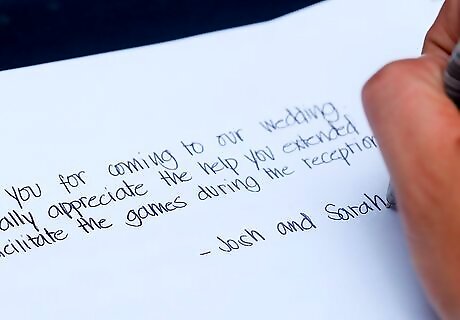 you for coming to our wedding
ally appreciate the help you extended
acilitate the games during the reception
- Josh and Sarah